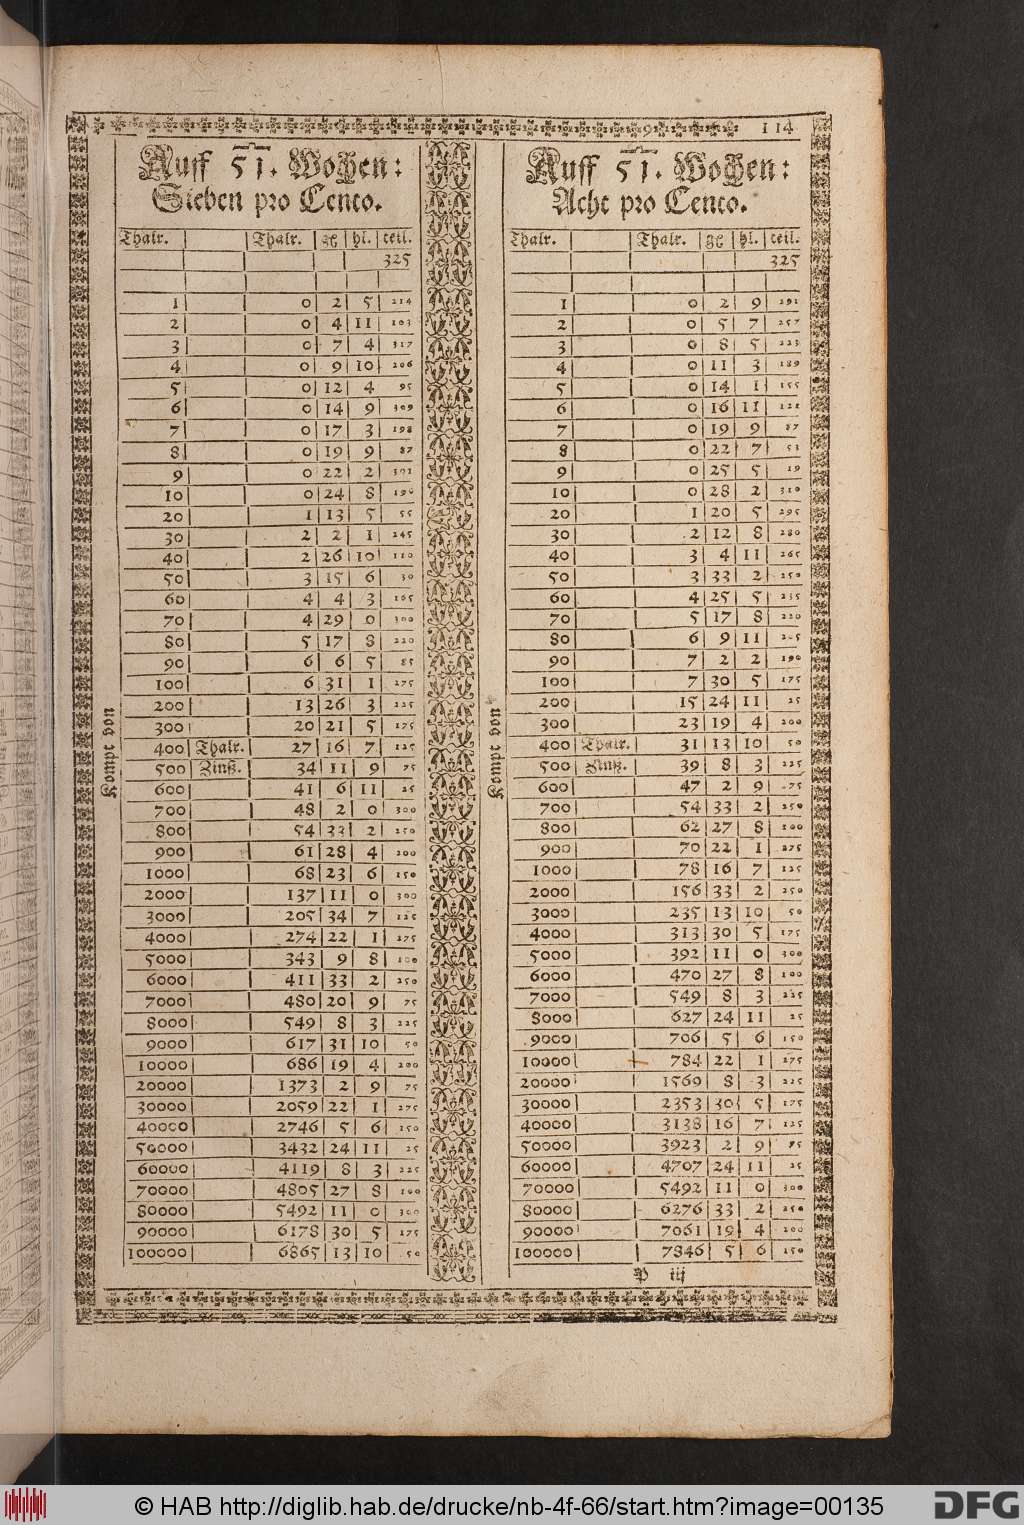 114
Auff 51. Wochen:
Sieben pro Cento.
Thalr. Thalr. gℓ hl. teil.
325
1 0 2 5 214
2 0 4 11 103
3 0 7 4 317
4 0 9 10 206
5 0 12 4 95
6 0 14 9 309
7 0 17 3 198
8 0 19 9 87
9 0 22 2 301
10 0 24 8 190
20 1 13 5 55
30 2 2 1 245
40 2 26 10 110
50 3 15 6 30
60 4 4 3 165
70 4 29 0 300
80 5 17 8 220
90 6 6 5 85
100 6 31 1 275
200 13 26 3 225
300 20 21 5 175
400 Thalr. 27 16 7 125
500 Zinß. 34 11 9 75
600 41 6 11 25
700 48 2 0 300
800 54 33 2 250
900 61 28 4 200
1000 68 23 6 150
2000 137 11 0 300
3000 205 34 7 125
4000 274 22 1 275
5000 343 9 8 100
6000 411 33 2 250
7000 480 20 9 75
8000 549 8 3 225
9000 617 31 10 50
10000 686 19 4 200
20000 1373 2 9 75
30000 2059 22 1 275
40000 2746 5 6 150
50000 3432 24 11 25
60000 4119 8 3 225
70000 4805 27 8 100
80000 5492 11 0 300
90000 6178 30 5 175
100000 6865 13 10 50
Kompt von
Auff 51. Wochen:
Acht pro Cento.
Thalr. Thalr. gℓ hl. teil.
325
1 0 2 9 291
2 0 5 7 257
3 0 8 5 223
4 0 11 3 189
5 0 14 1 155
6 0 16 11 121
7 0 19 9 87
8 0 22 7 53
9 0 25 5 19
10 0 28 2 310
20 1 20 5 295
30 2 12 8 280
40 3 4 11 265
50 3 33 2 250
60 4 25 5 235
70 5 17 8 220
80 6 9 11 205
90 7 2 2 190
100 7 30 5 175
200 15 24 11 25
300 23 19 4 200
400 Thalr. 31 13 10 50
500 Zinß. 39 8 3 225
600 47 2 9 75
700 54 33 2 250
800 62 27 8 100
900 70 22 1 275
1000 78 16 7 125
2000 156 33 2 250
3000 235 13 10 50
4000 313 30 5 175
5000 392 11 0 300
6000 470 27 8 100
7000 549 8 3 225
8000 627 24 11 25
9000 706 5 6 150
10000 784 22 1 275
20000 1569 8 3 225
30000 2353 30 5 175
40000 3138 16 7 125
50000 3923 2 9 75
60000 4707 24 11 25
70000 5492 11 0 300
80000 6276 33 2 250
90000 7061 19 4 200
100000 7846 5 6 150
Kompt von
P iij
© HAB http://diglib.hab.de/drucke/nb-4f-66/start.htm?image=00135
DFG